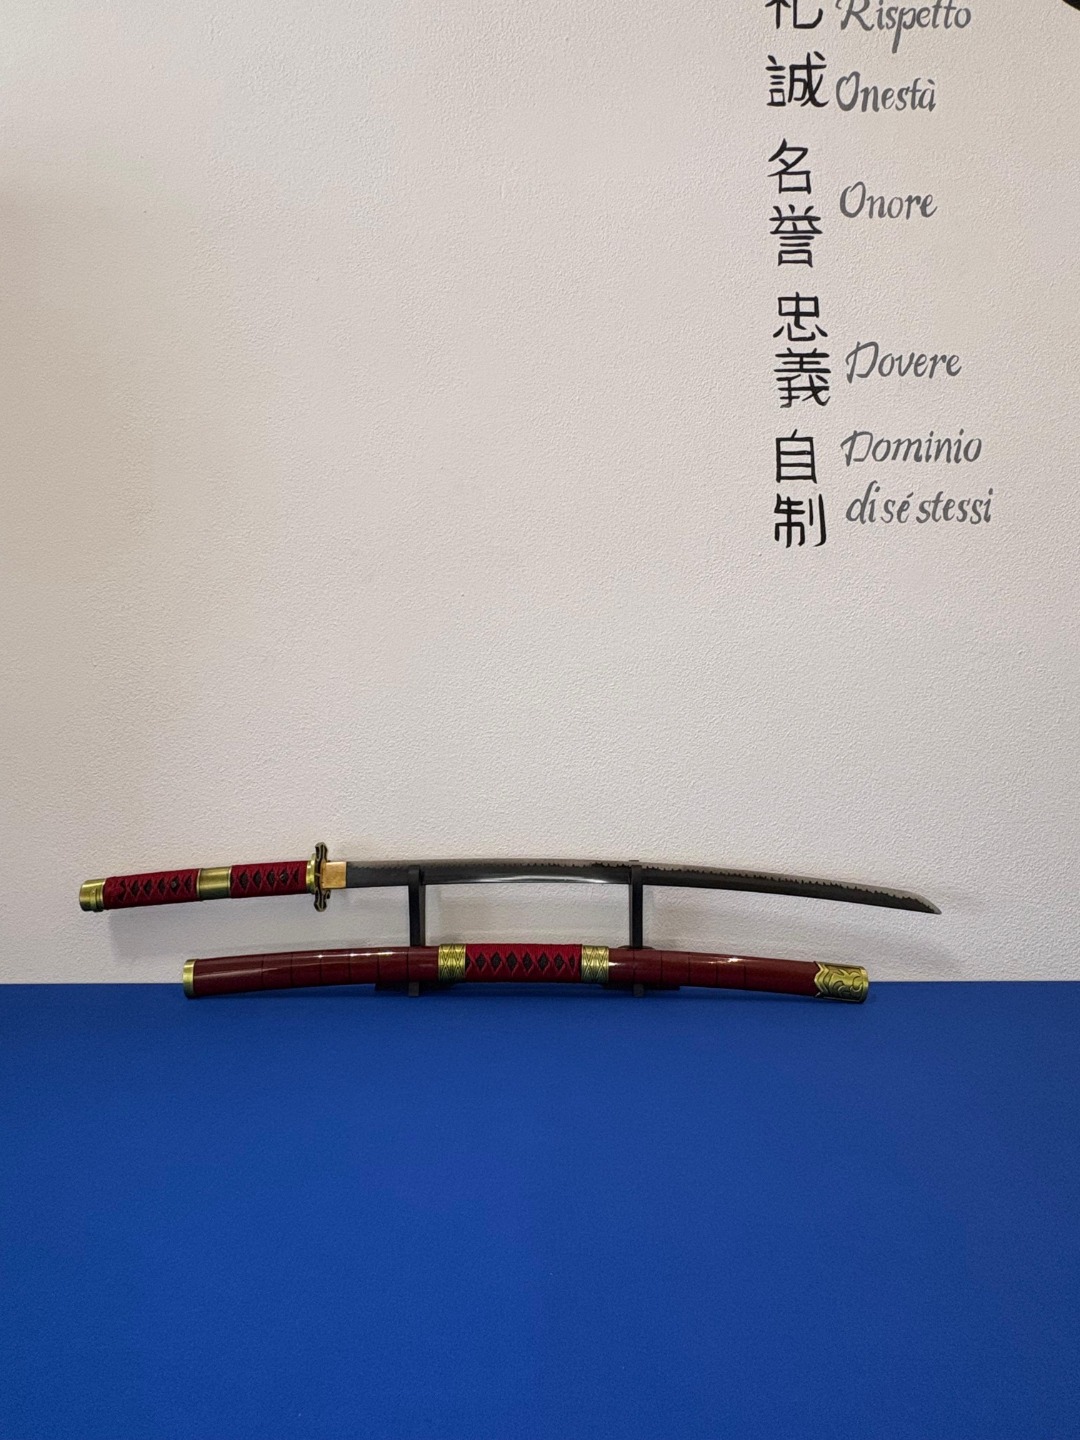 礼 Rispetto
誠 Onestà
名誉 Onore
忠義 Dovere
自制 Dominio
di sé stessi